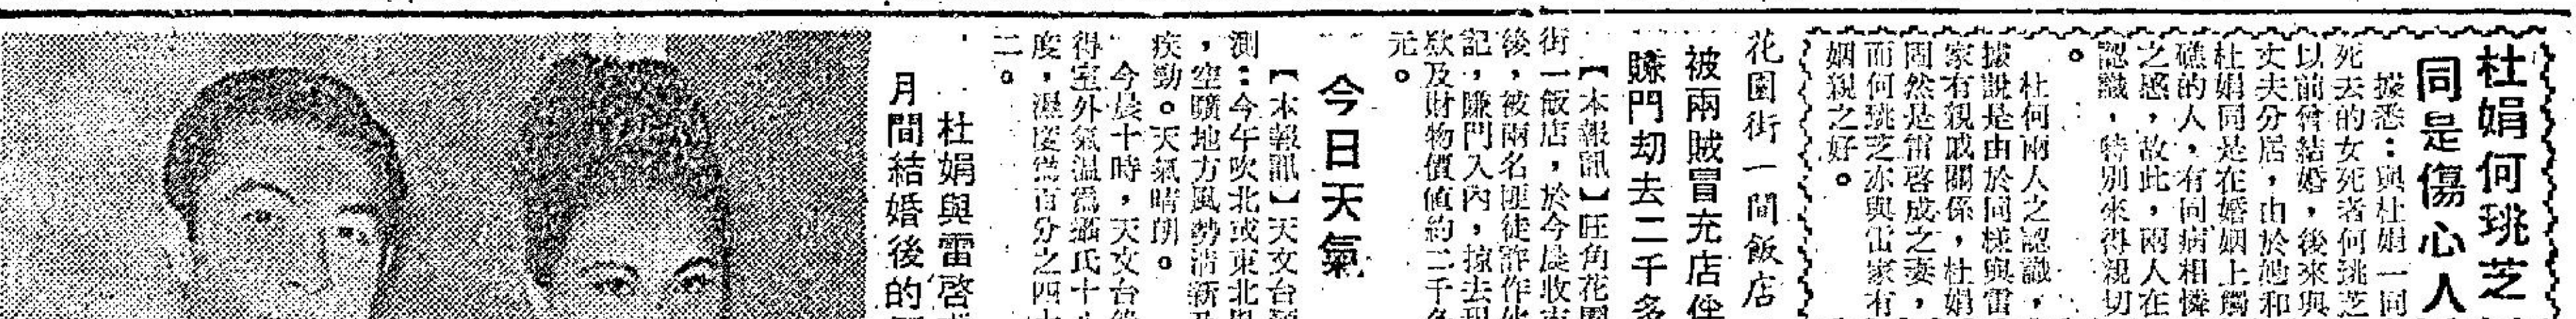 杜娟何珧芝
同是傷心人
據悉：與杜娟一同
死去的女死者何珧芝
以前曾結婚，後來與
丈夫分居，由於他和
杜娟同是在婚姻上觸
礁的人，有同病相憐
之感，故此，兩人在
認識，特別來得親切
。
杜何兩人之認識，
據說是由於同樣與雷
家有親戚關係，杜娟
固然是雷啓成之妻，
而何珧芝亦與雷家有
姻親之好。
花園街一間飯店
被兩賊冒充店伴
賺門劫去二千多
【本報訊】旺角花園
街一飯店，於今晨收市
後，被兩名匪徒詐作
記，賺門入內，掠去現
欵及財物價值約二千多
元。
今日天氣
【本報訊】天文台預
測：今午吹北或東北風
，空曠地方風勢清新及
疾勁。天氣晴朗。
今晨十時，天文台
得室外氣溫爲攝氏十
度，濕度爲百分之四十
二。
杜娟與雷啓
月間結婚後的